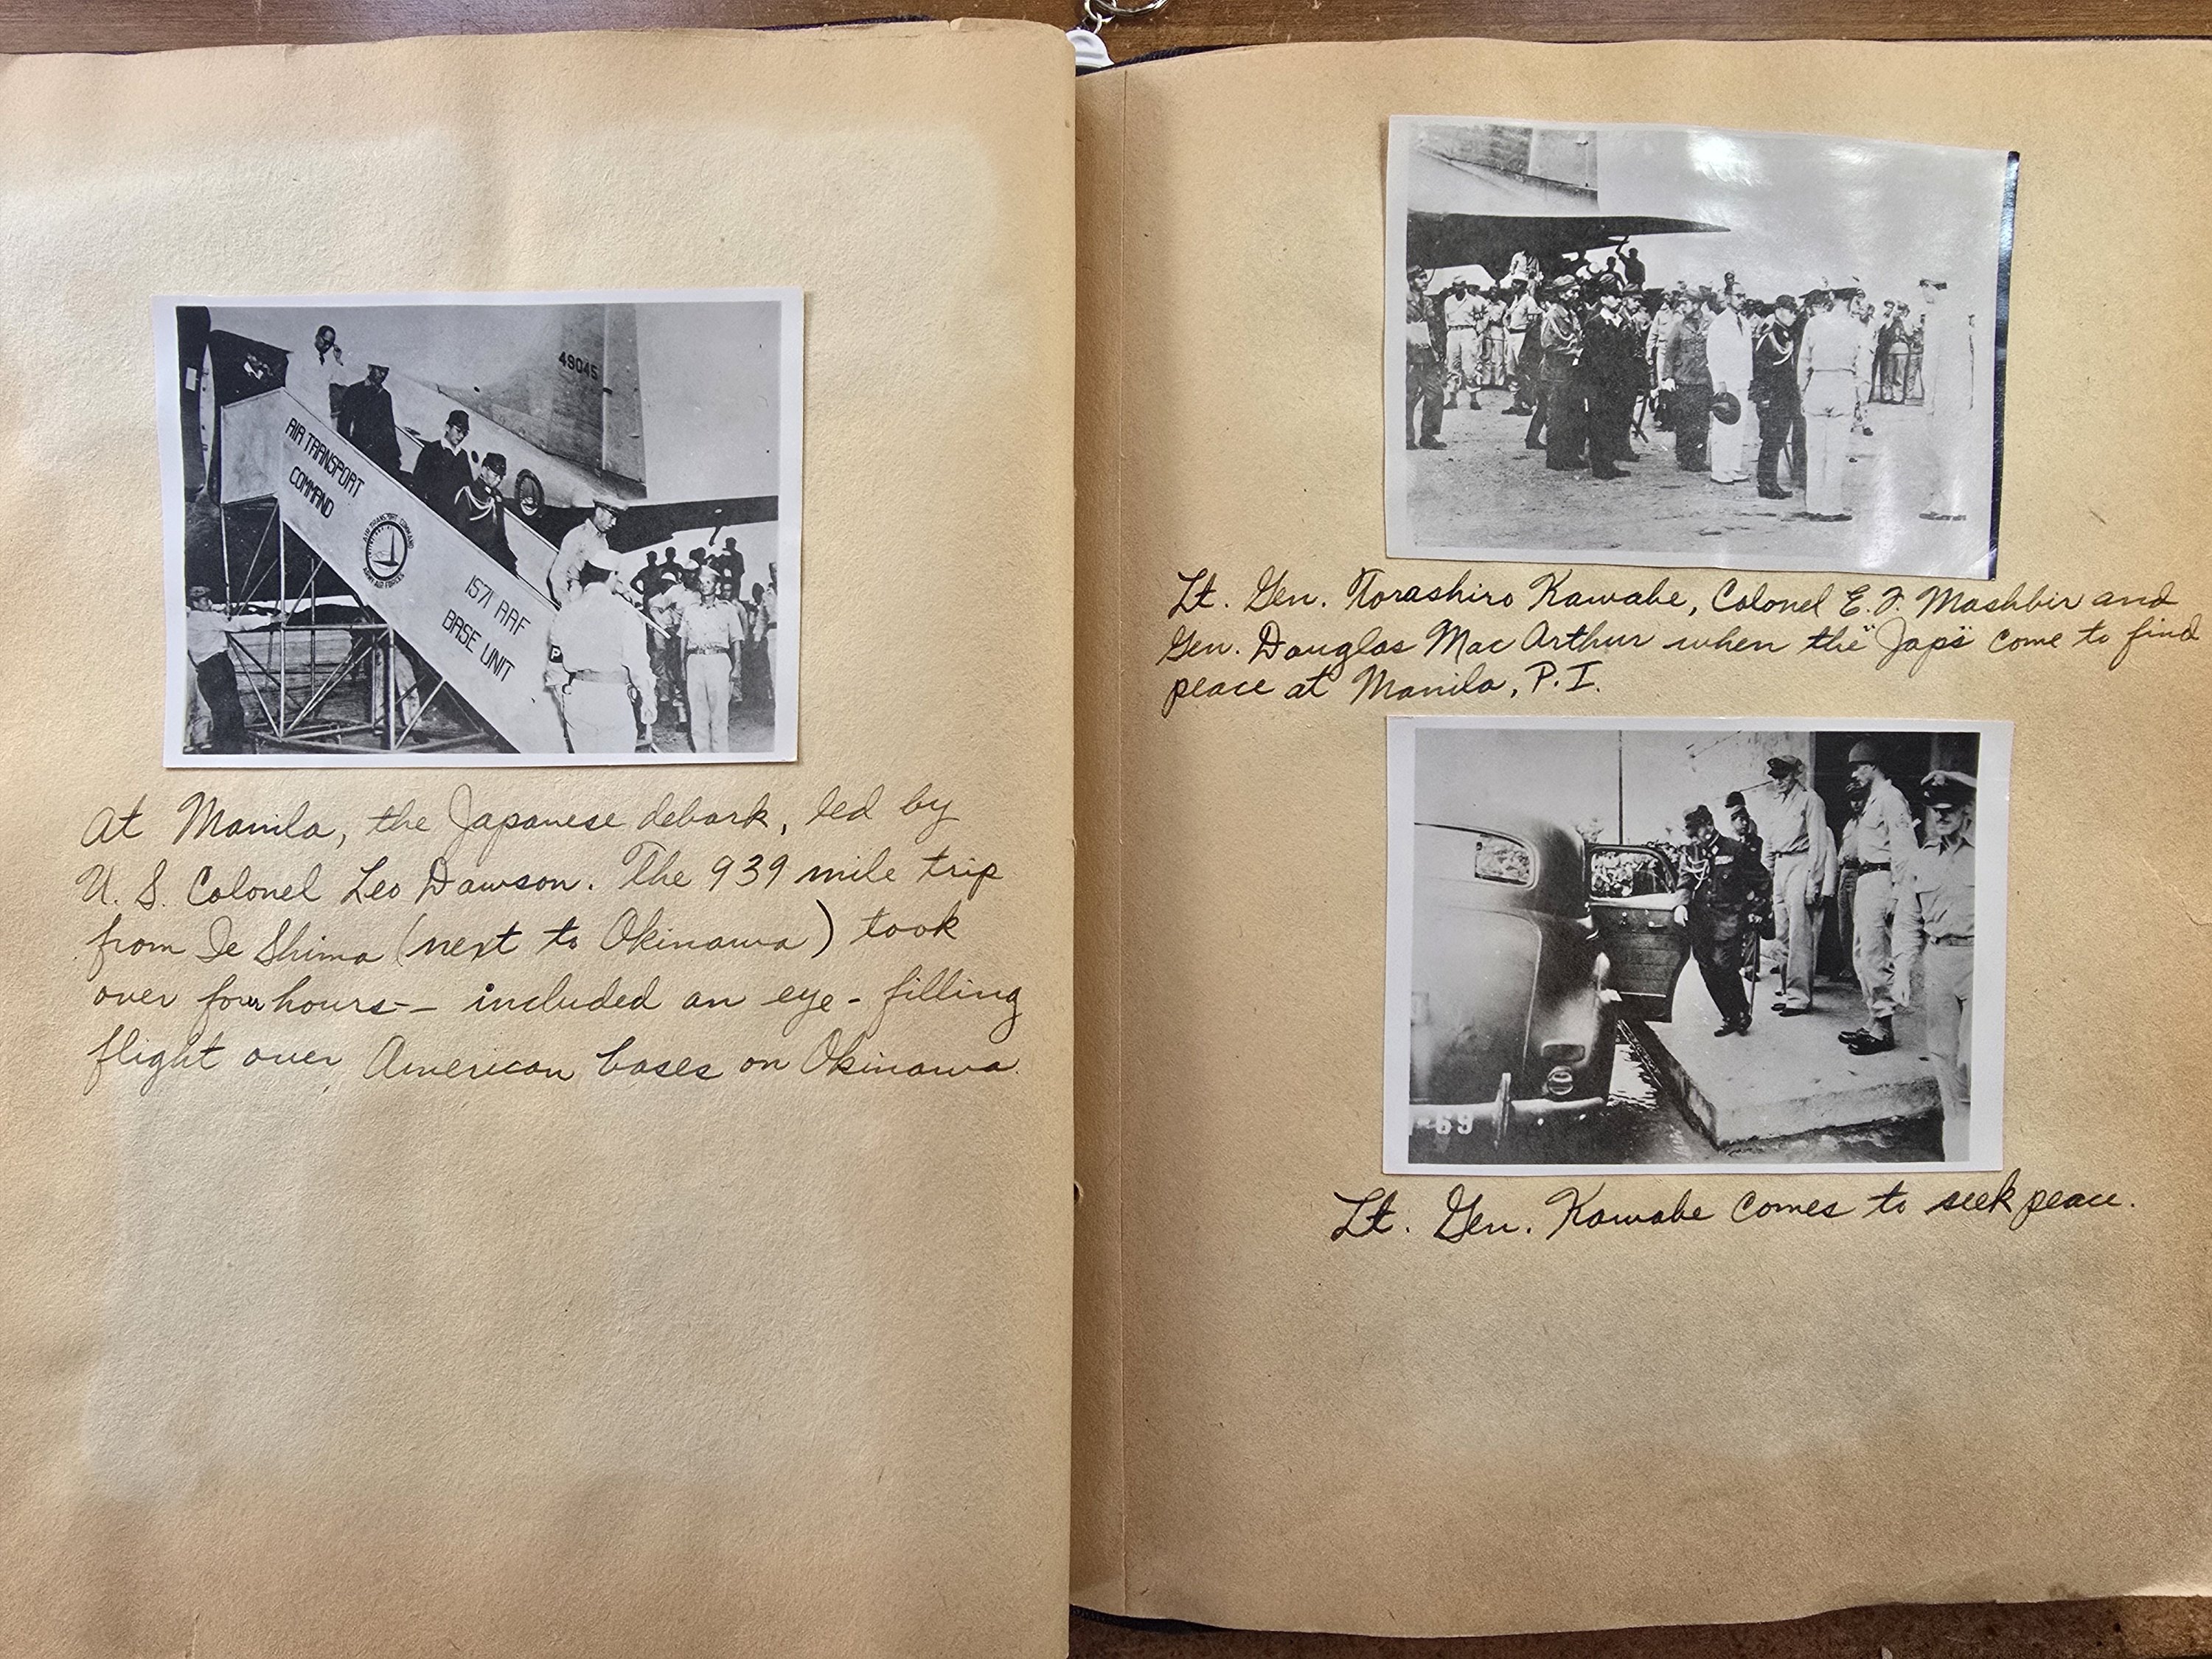 49045
AIR TRANSPORT
COMMAND
AIR TRANSPORT COMMAND
ARMY AIR FORCES
1571 AAF
BASE UNIT
P
At Manila, the Japanese debark, led by
U. S. Colonel Leo Dawson. The 939 mile trip
from Ie Shima (next to Okinawa) took
over four hours-- included an eye-filling
flight over American bases on Okinawa.
Lt. Gen. Torashiro Kawabe, Colonel E. F. Mashbir and
Gen. Douglas Mac Arthur when the "Japs" come to find
peace at Manila, P. I.
69
Lt. Gen. Kawabe comes to seek peace.